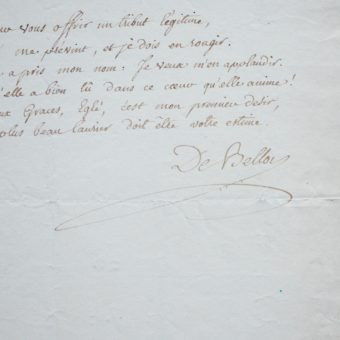 vous offrir un tribut légitime,
me prévint, et je dois en rougir.
a pris mon nom : Je veux m'en applaudir.
qu'elle a bien lû dans ce cœur qu'elle anime !
aux Graces, Eglé, c'est mon premier desir,
plus beau laurier doit être votre estime.
De Belloy